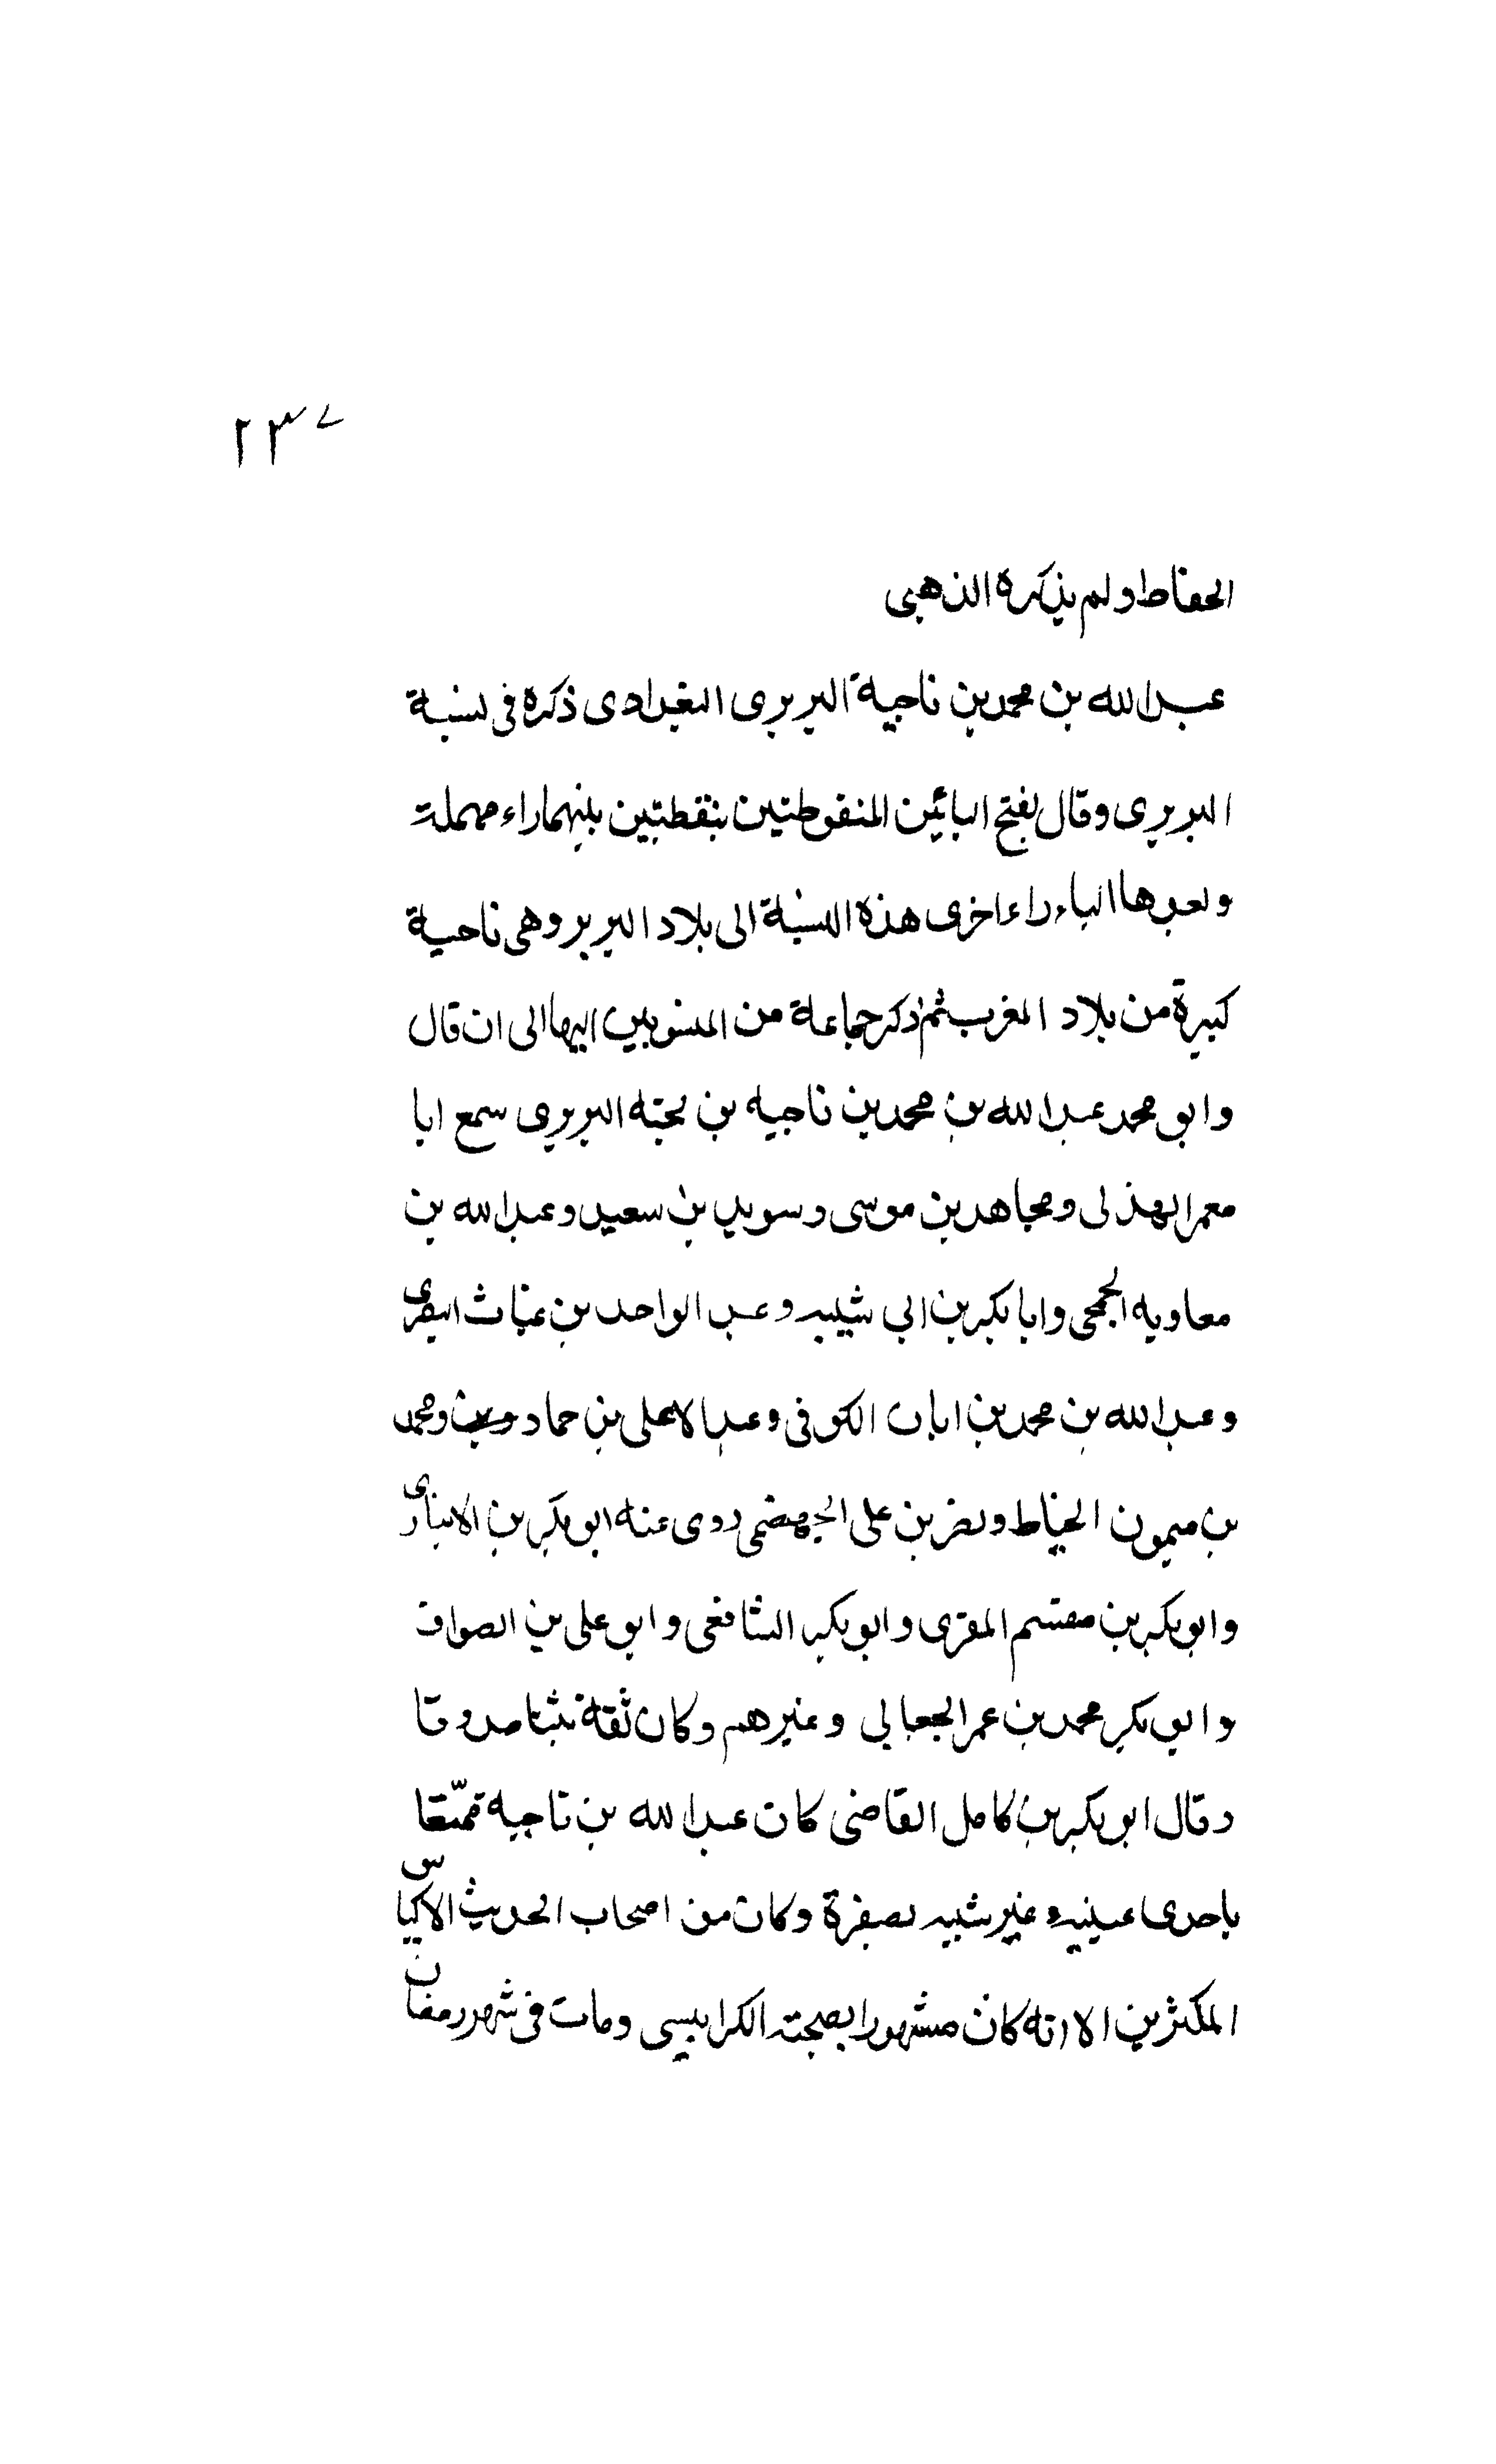 ٢٣٧
الحفاط ولم يذكره الذهبى
عبد الله بن محمد بن ناجية البربرى البغدادى ذكره فى نسبة
البربرى وقال بفتح البائين المنقوطتين بنقطتين بينهما راء مهملة
وبعدها الباء راء اخرى هذه النسبة الى بلاد البربر وهى ناحية
كبيرة من بلاد المغرب ثم ذكر جماعة من المنسوبين اليها الى ان قال
وابو محمد عبد الله بن محمد بن ناجيه بن نجبه البربرى سمع ابا
معمر الهذلى ومجاهد بن موسى وسويد بن سعيد وعبد الله بن
معاويه الجمحى وابا بكر بن ابى شيبه وعبد الواحد بن غياث البصرى
وعبد الله بن محمد بن ابان الكوفى وعبد الاعلى بن حماد ومحمد
بن ميمون الخياط ونصر بن على الجهضمى روى عنه ابو بكر بن الانبارى
وابو بكر بن مقسم المقرى وابو بكر الشافعى وابو على بن الصواف
وابو بكر محمد بن عمر الجعابى وغيرهم وكان ثقة ثبتا صدوقا
وقال ابو بكر بن كامل القاضى كان عبد الله بن ناجيه ممتّعا
باحدى عينيه غير شبيه بصفرة وكان من اصحاب الحديث الاكياس
المكثرين الا انه كان مشهورا بصحبته الكرابيسى ومات فى شهر رمضان